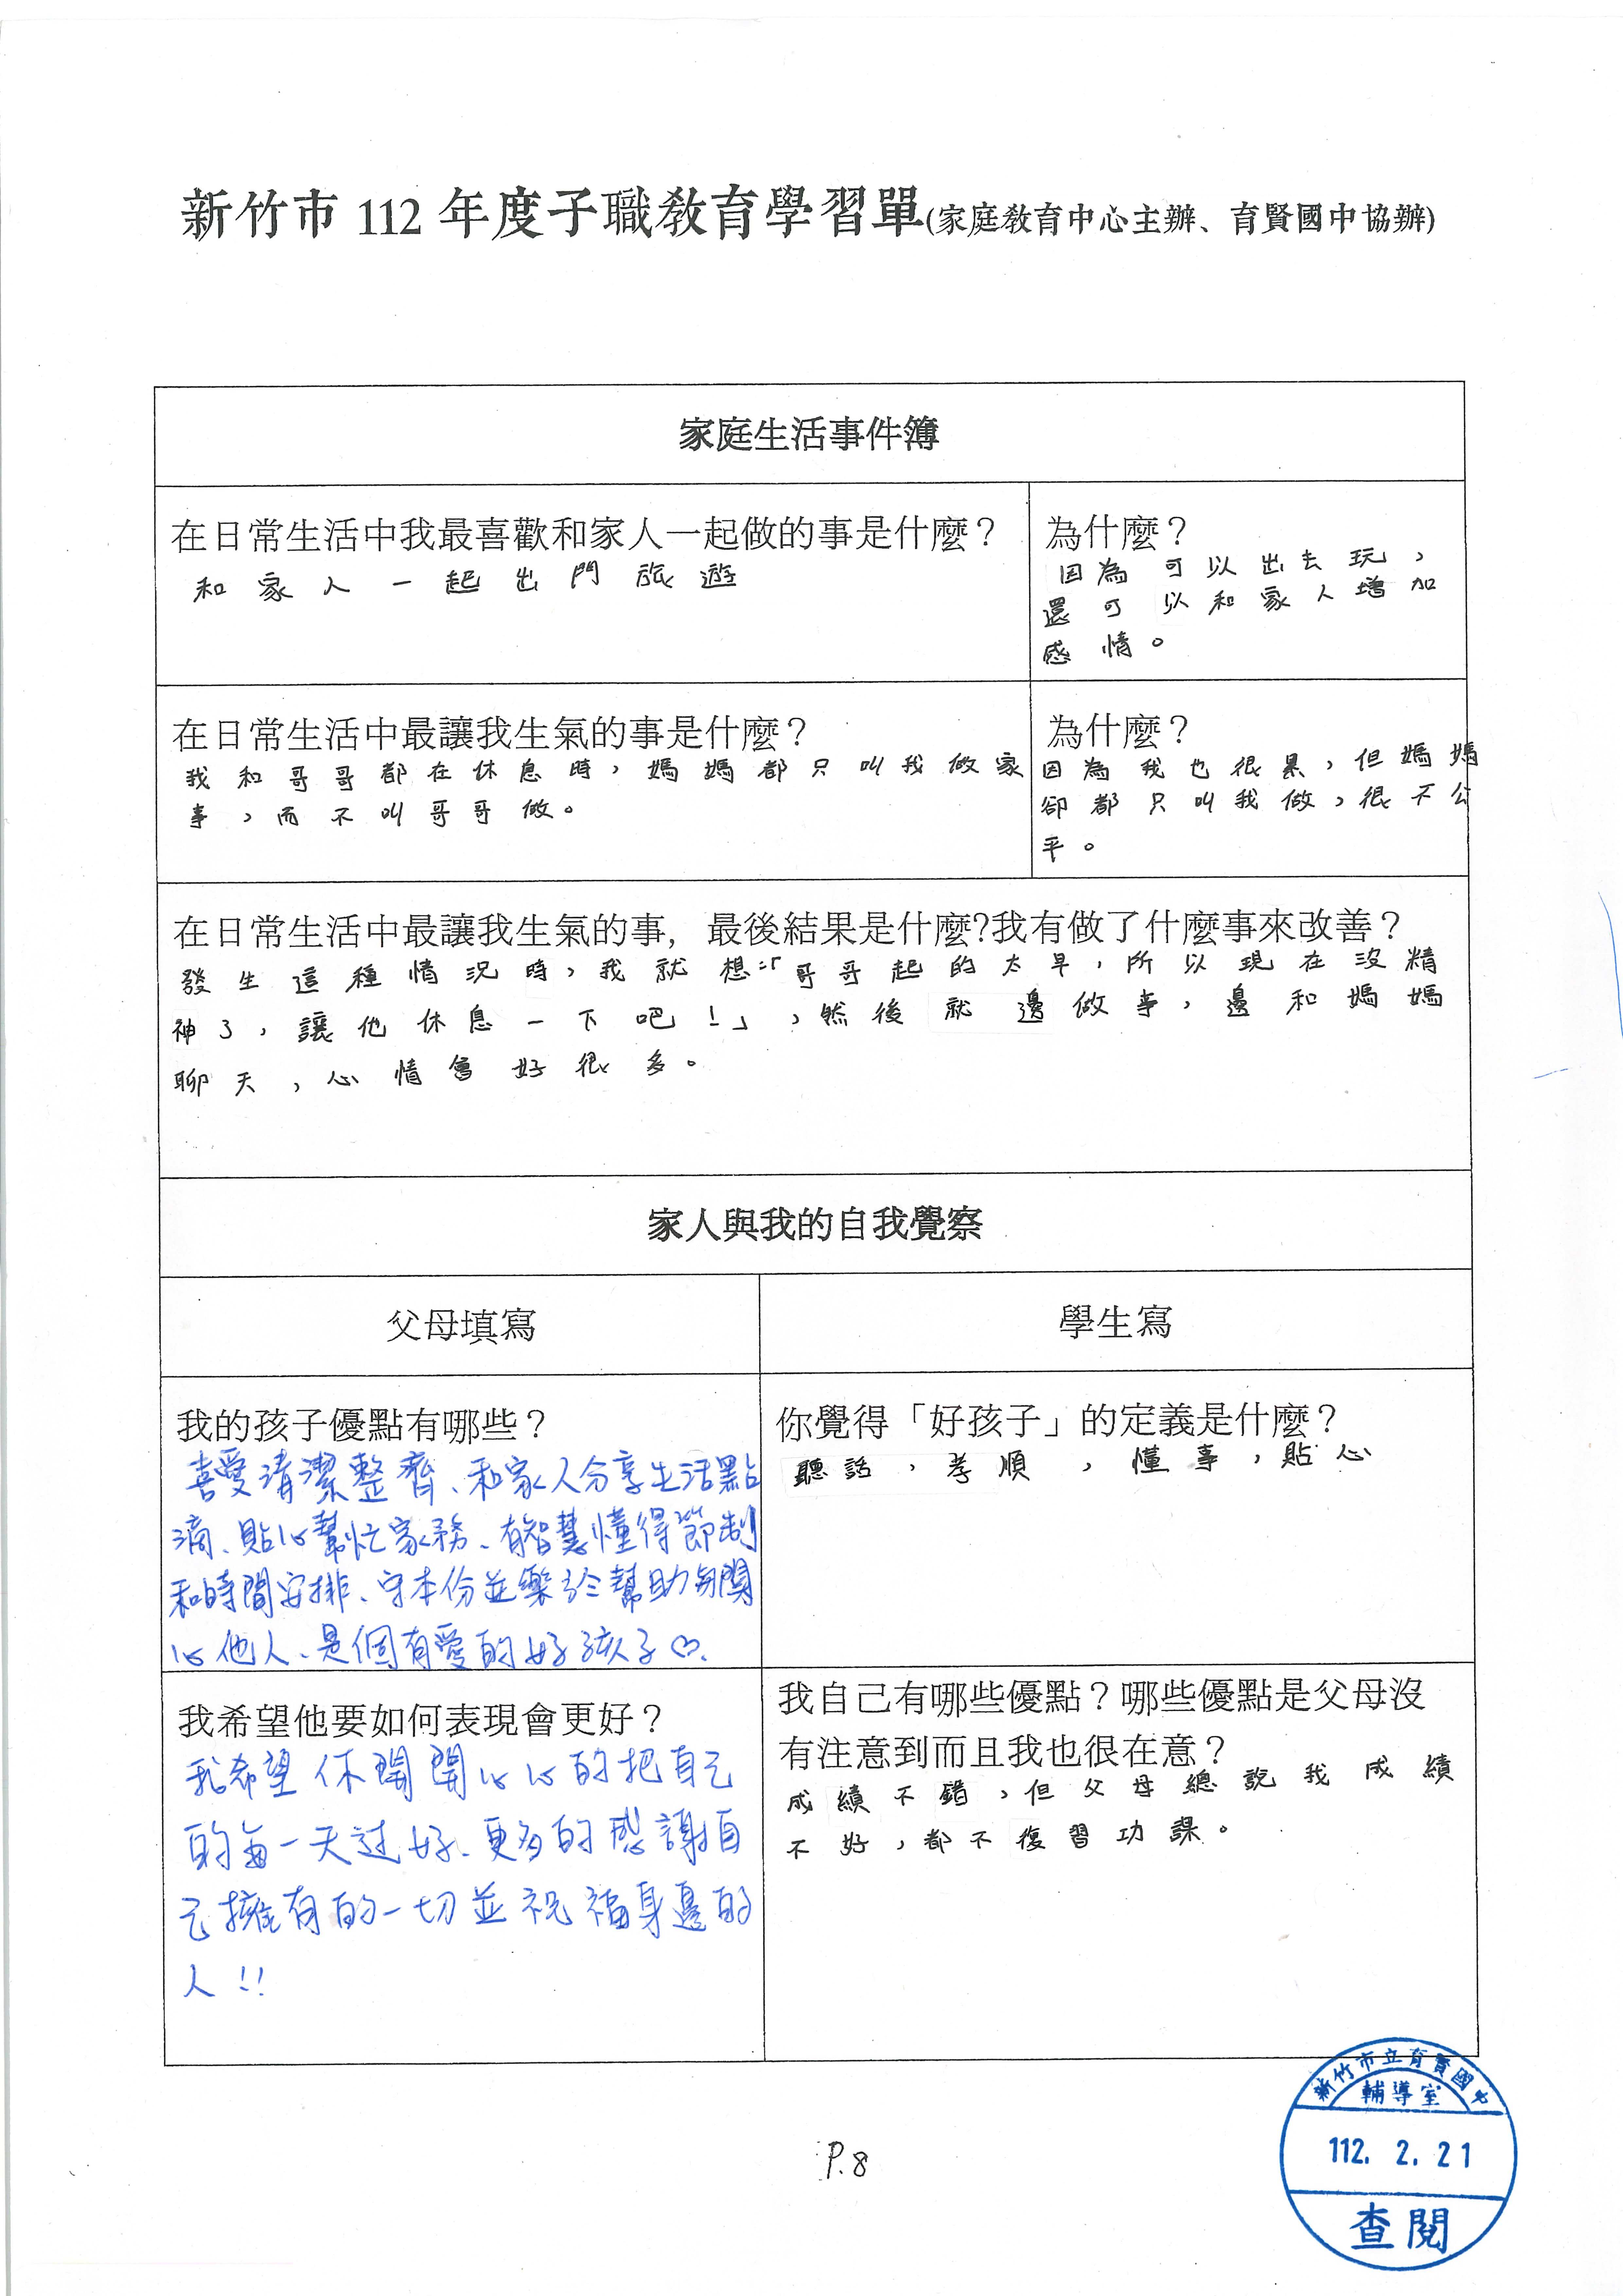 新竹市 112 年度子職教育學習單(家庭教育中心主辦、育賢國中協辦)
家庭生活事件簿
在日常生活中我最喜歡和家人一起做的事是什麼？
和家人一起出門旅遊
為什麼？
因為可以出去玩，
還可以和家人增加
感情。
在日常生活中最讓我生氣的事是什麼？
我和哥哥都在休息時，媽媽都只叫我做家
事，而不叫哥哥做。
為什麼？
因為我也很累，但媽媽
卻都只叫我做，很不公
平。
在日常生活中最讓我生氣的事，最後結果是什麼?我有做了什麼事來改善？
發生這種情況時，我就想：「哥哥起的太早，所以現在沒精
神了，讓他休息一下吧！」，然後就邊做事，邊和媽媽
聊天，心情會好很多。
家人與我的自我覺察
父母填寫
學生寫
我的孩子優點有哪些？
喜愛清潔整齊、和家人分享生活點
滴、貼心幫忙家務、有智慧懂得節制
和時間安排、守本份並樂於幫助與關
心他人、是個有愛的好孩子♡.
你覺得「好孩子」的定義是什麼？
聽話，孝順，懂事，貼心
我希望他要如何表現會更好？
我希望你開開心心的把自己
的每一天过好、更多的感謝自
己擁有的一切並祝福身邊的
人!!
我自己有哪些優點？哪些優點是父母沒
有注意到而且我也很在意？
成績不錯，但父母總說我成績
不好，都不復習功課。
P.8
新竹市立育賢國中
輔導室
112. 2. 21
查閱